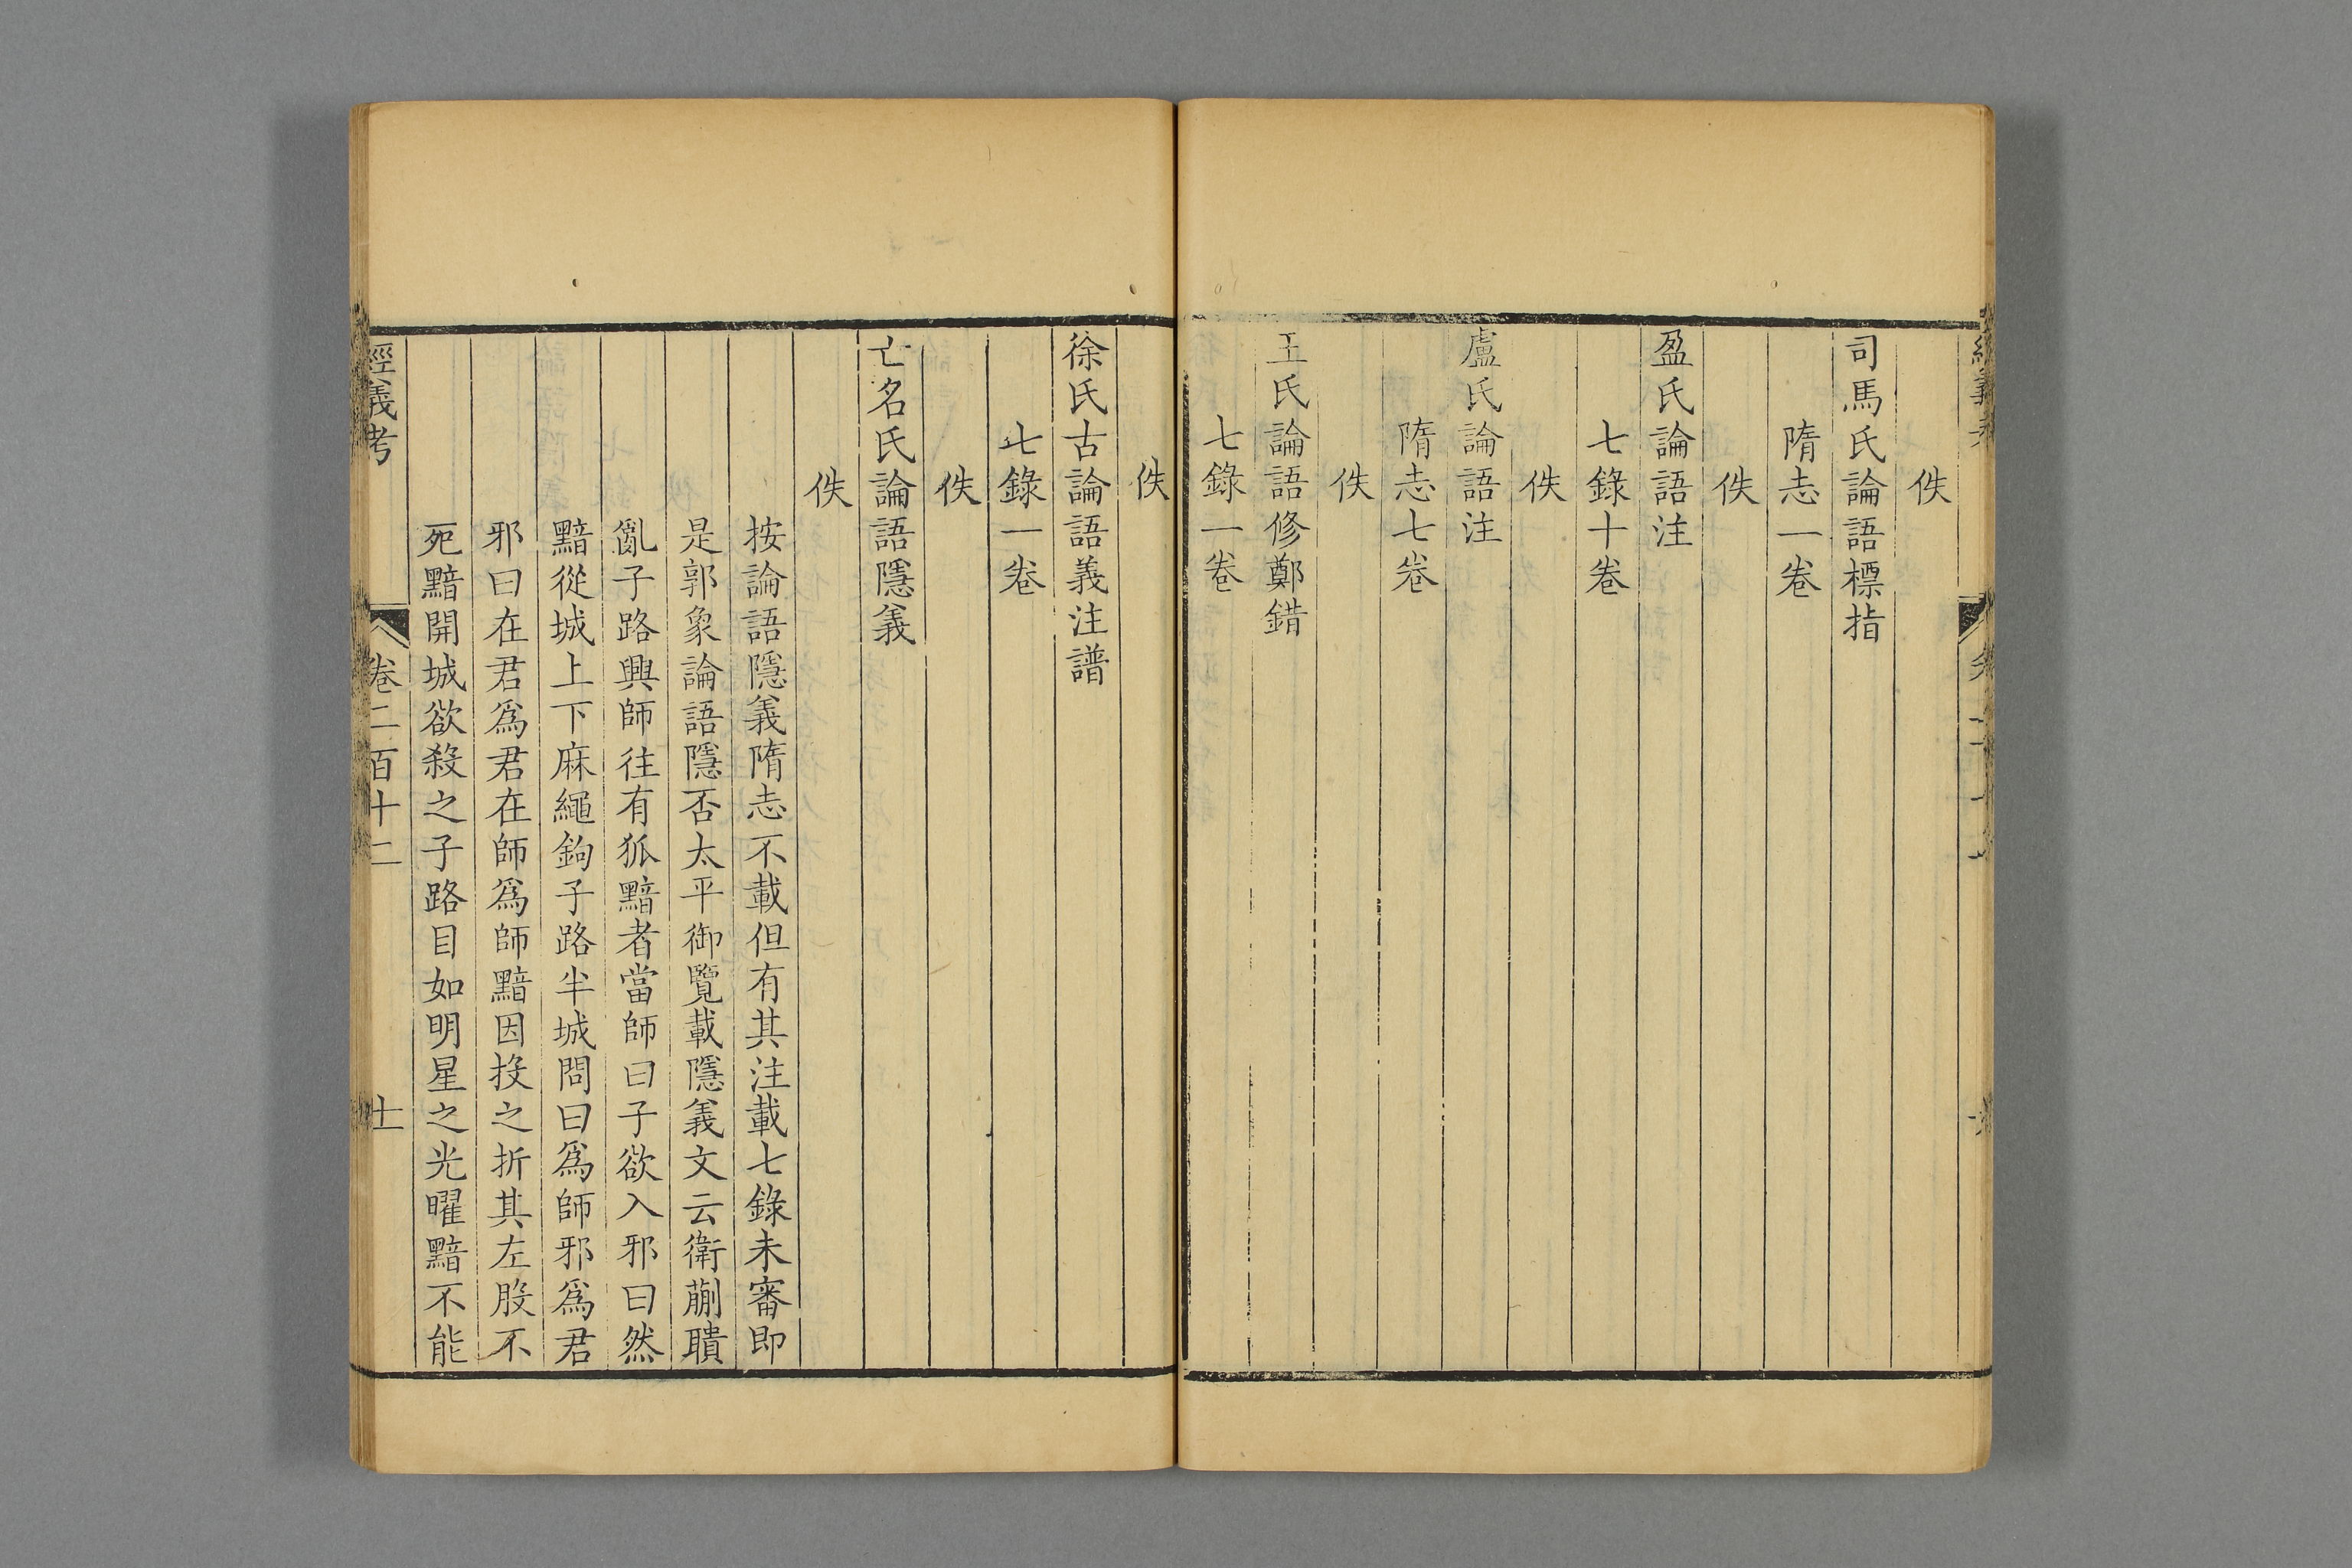 佚
司馬氏論語標指
隋志一卷
佚
盈氏論語注
七錄十卷
佚
盧氏論語注
隋志七卷
佚
王氏論語修鄭錯
七錄一卷
佚
徐氏古論語義注譜
七錄一卷
佚
亡名氏論語隱義
佚
按論語隱義隋志不載但有其注載七錄未審即
是郭象論語隱否太平御覽載隱義文云衛蒯聵
亂子路興師往有狐黯者當師曰子欲入邪曰然
黯從城上下麻繩鉤子路半城問曰爲師邪爲君
邪曰在君爲君在師爲師黯因投之折其左股不
死黯開城欲殺之子路目如明星之光曜黯不能
經義考
卷二百十二
十一